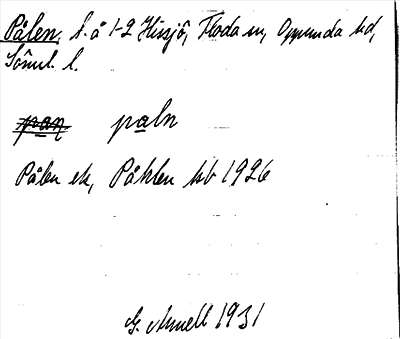 Pålen, t. å 1-2 Hissjö, Floda sn, Oppunda hd,
Söml. l.
pan paln
Pålen ek, Påhlen kb 1926
G. Arnell 1931